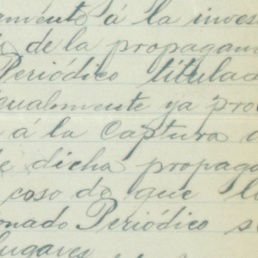 amento á la inves
de la propagan
Periódico titulad
igualmente ya pro
á la Captura d
de dicha propag
caso de que lo
onado Periódico s
lugares